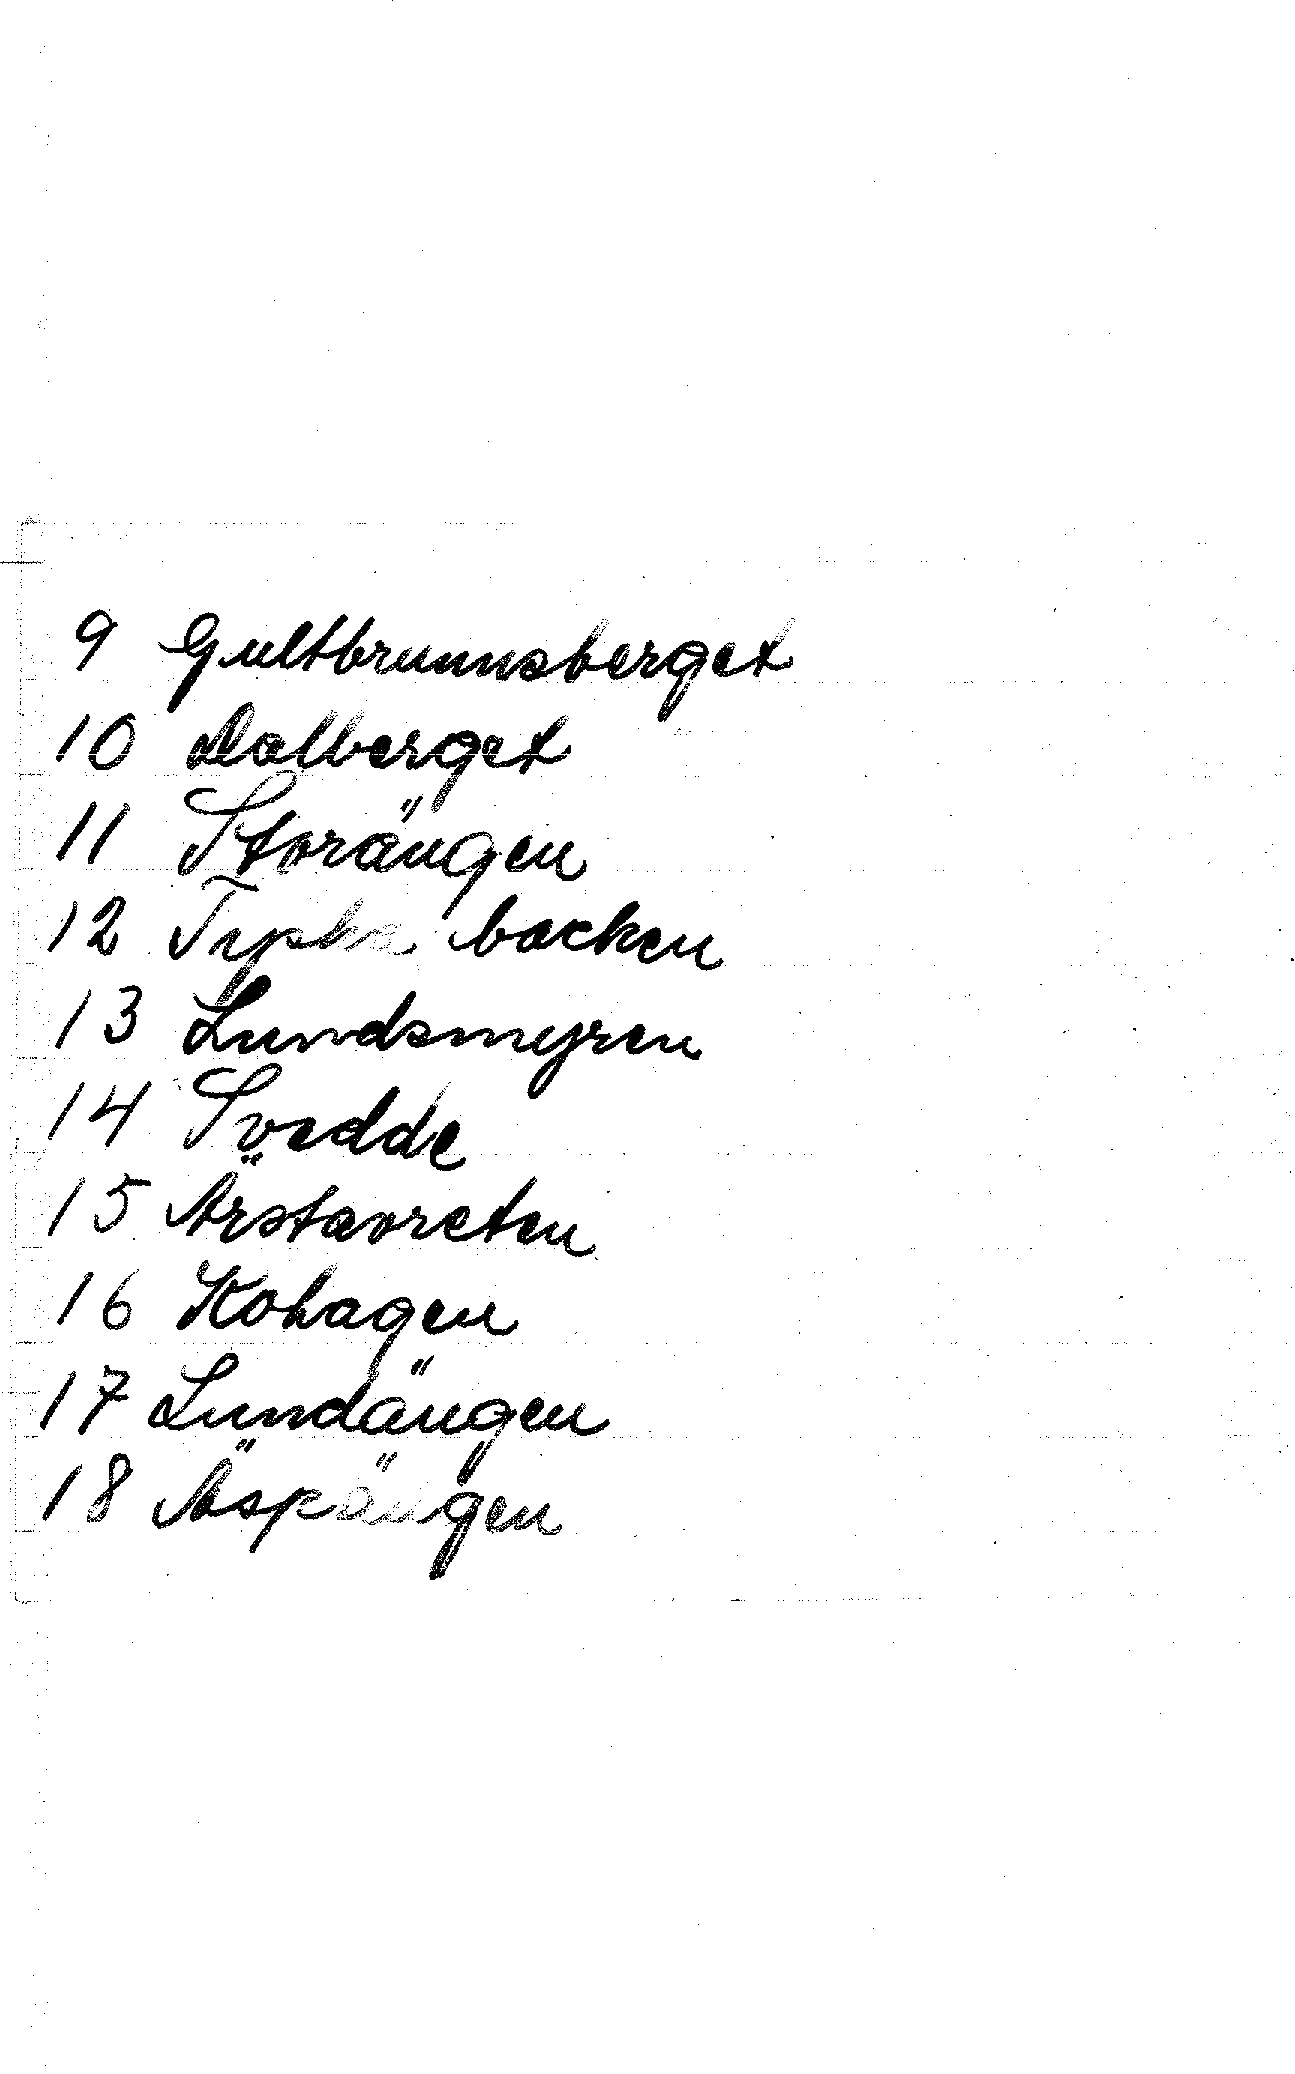 9 Gultbrunnsberget
10 Dalberget
11 Storängen
12 backen
13 Lundsmyren
14 Svedde
15 Ärstavreten
16 Kohagen
17 Lundängen
18 Äspängen